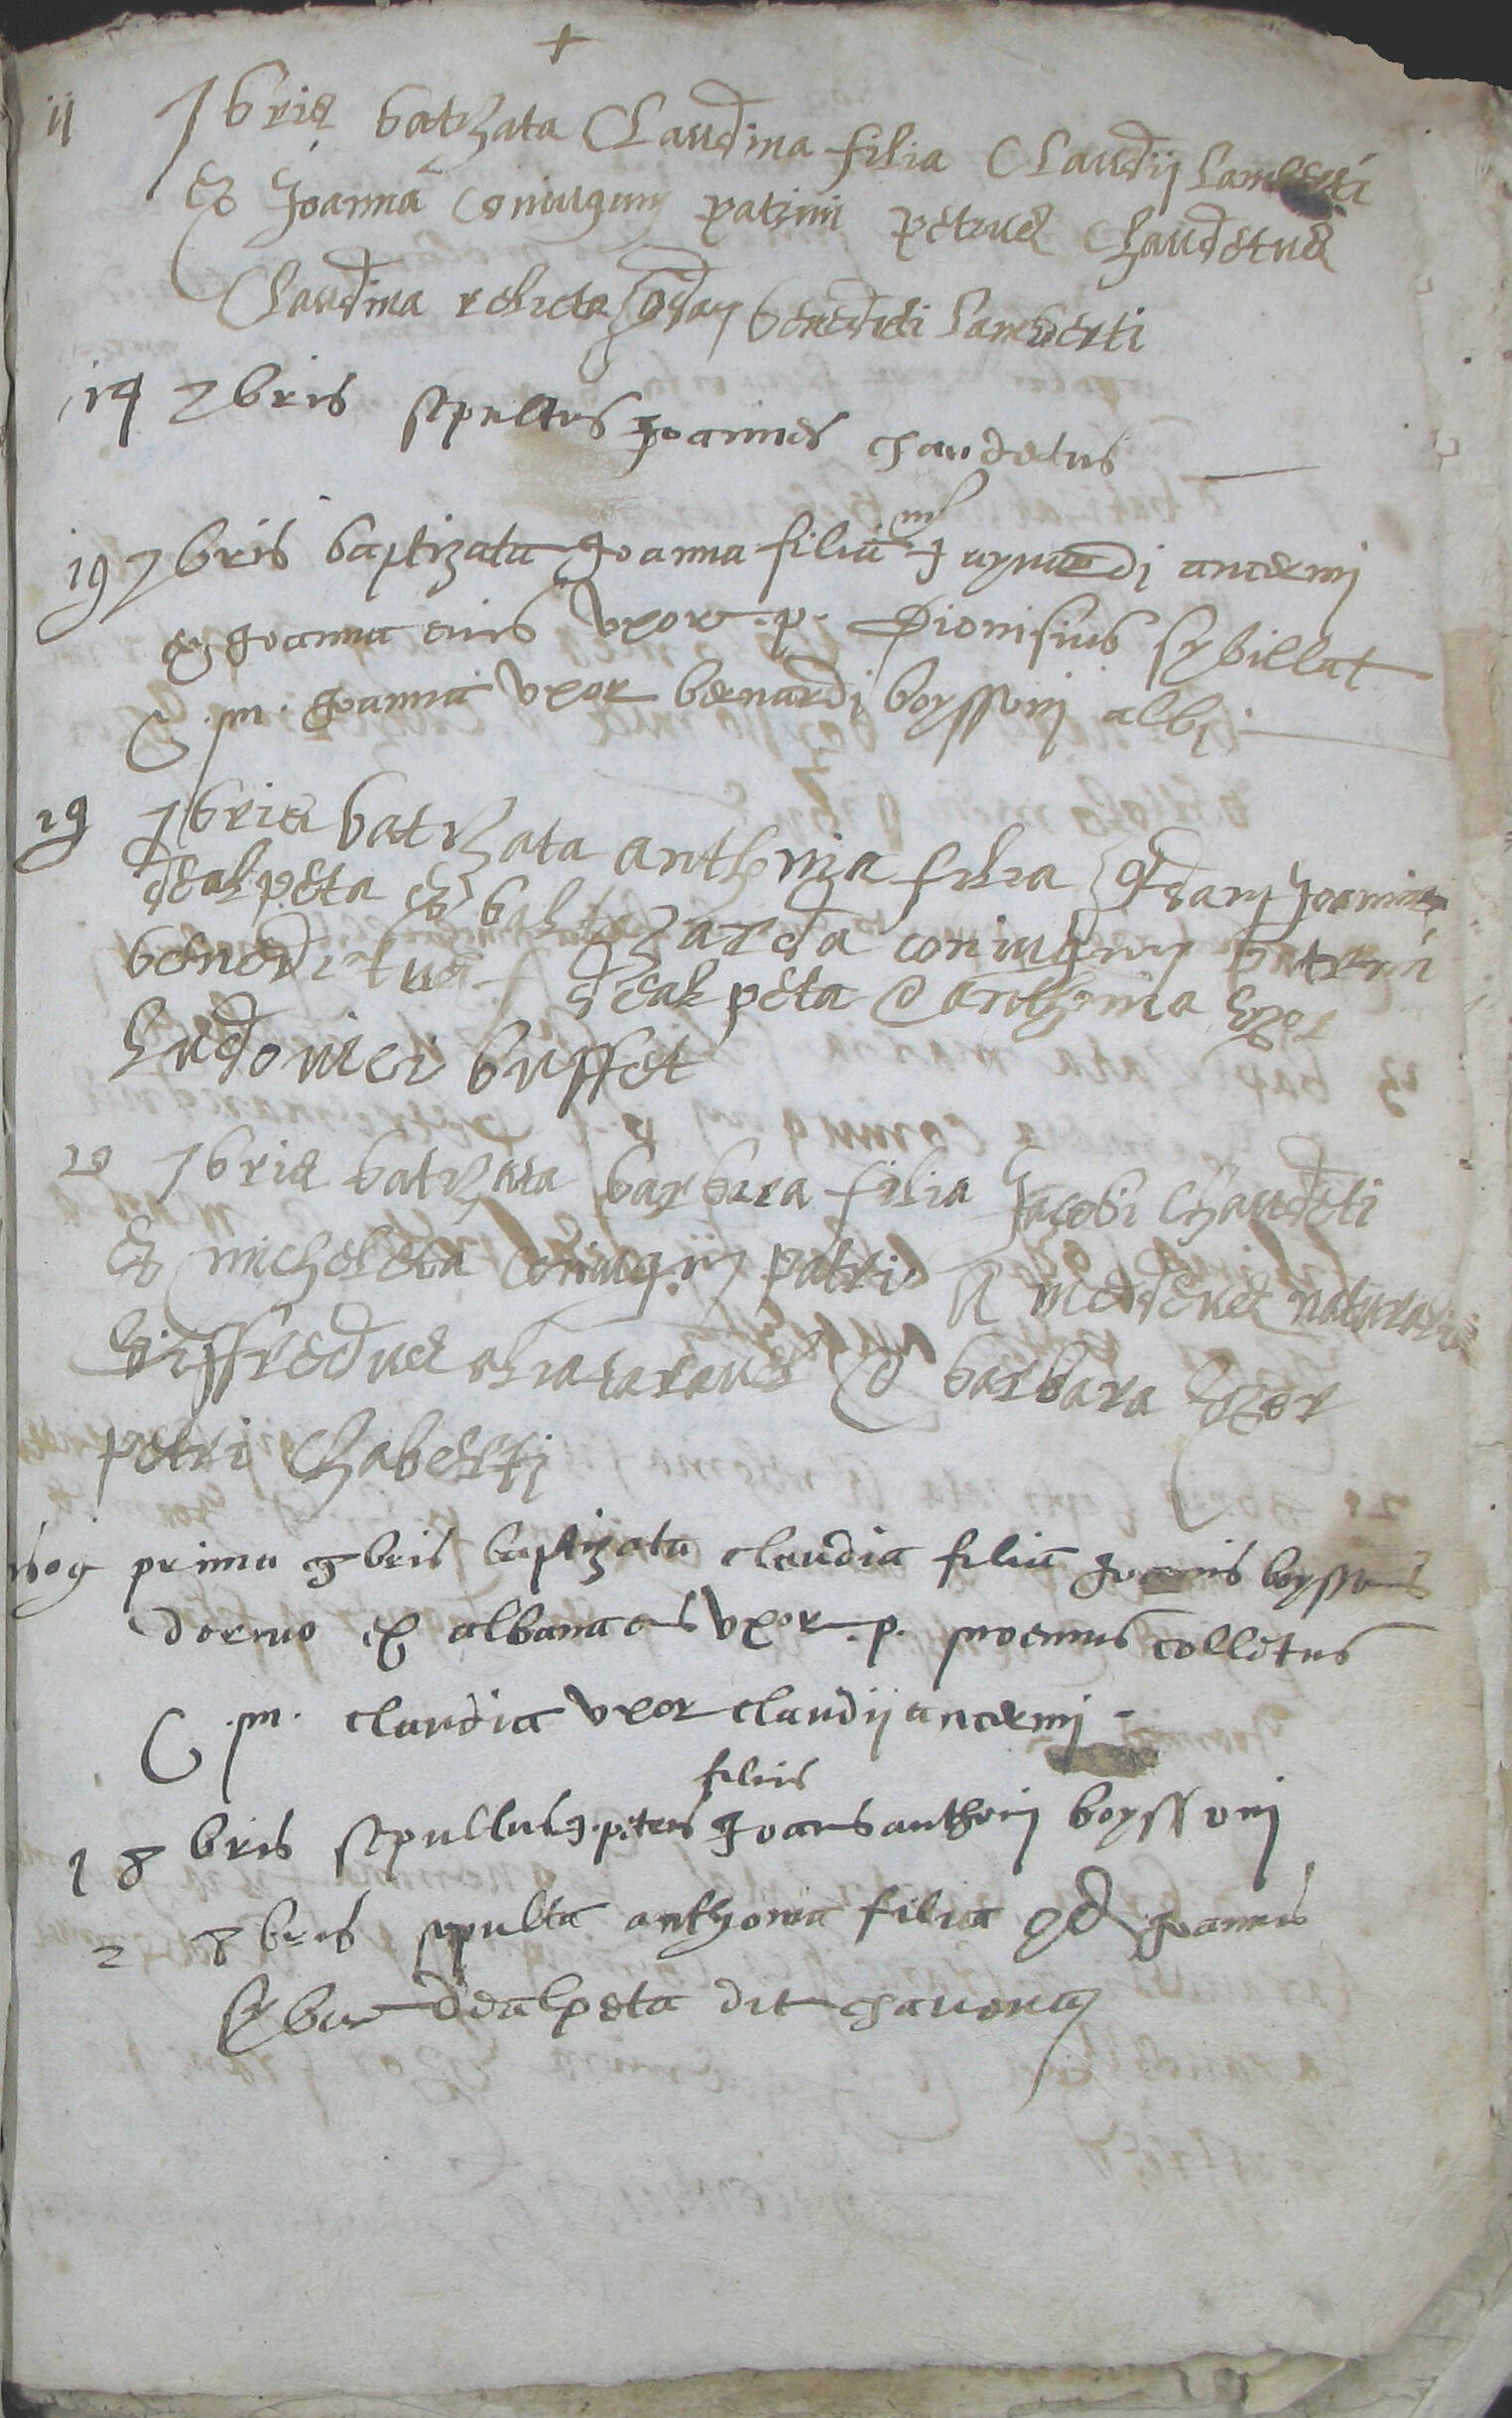 +
ii 7bris batizata Claudina filia Claudii Lamberti
et Joanna coniugum patrini petrus Chaudetus
Claudina relicta qdam benedicti Lamberti
14 7bris sepultus Joannes chaudetus
19 7bris baptizata Joanna filia aynardi
et Joanna eius uxore .p. Dionisius sybillat
.m. Joanna uxor bernardi boyssoni albi
19 7bris batizata anthonia filia qdam Joannis
dealpeta et baltezarda coniugum patrini
benedictus dealpeta et anthonia uxor
Ludovici buffet
20 7bris batizata barbara filia Jacobi Chaudeti
et micheleta coniugum patrini naturalis
et barbara uxor
petri Chaberti
prima 8bris baptizata claudia filia Joannis boyssonis
et albana eius uxor .p. colletus
.m. claudia uxor claudii
filius
1 8bris sepultus petrus Joannis anthonii boyssoni
2 8bris sepulta anthonia filia qd Joannis
dealpeta dit